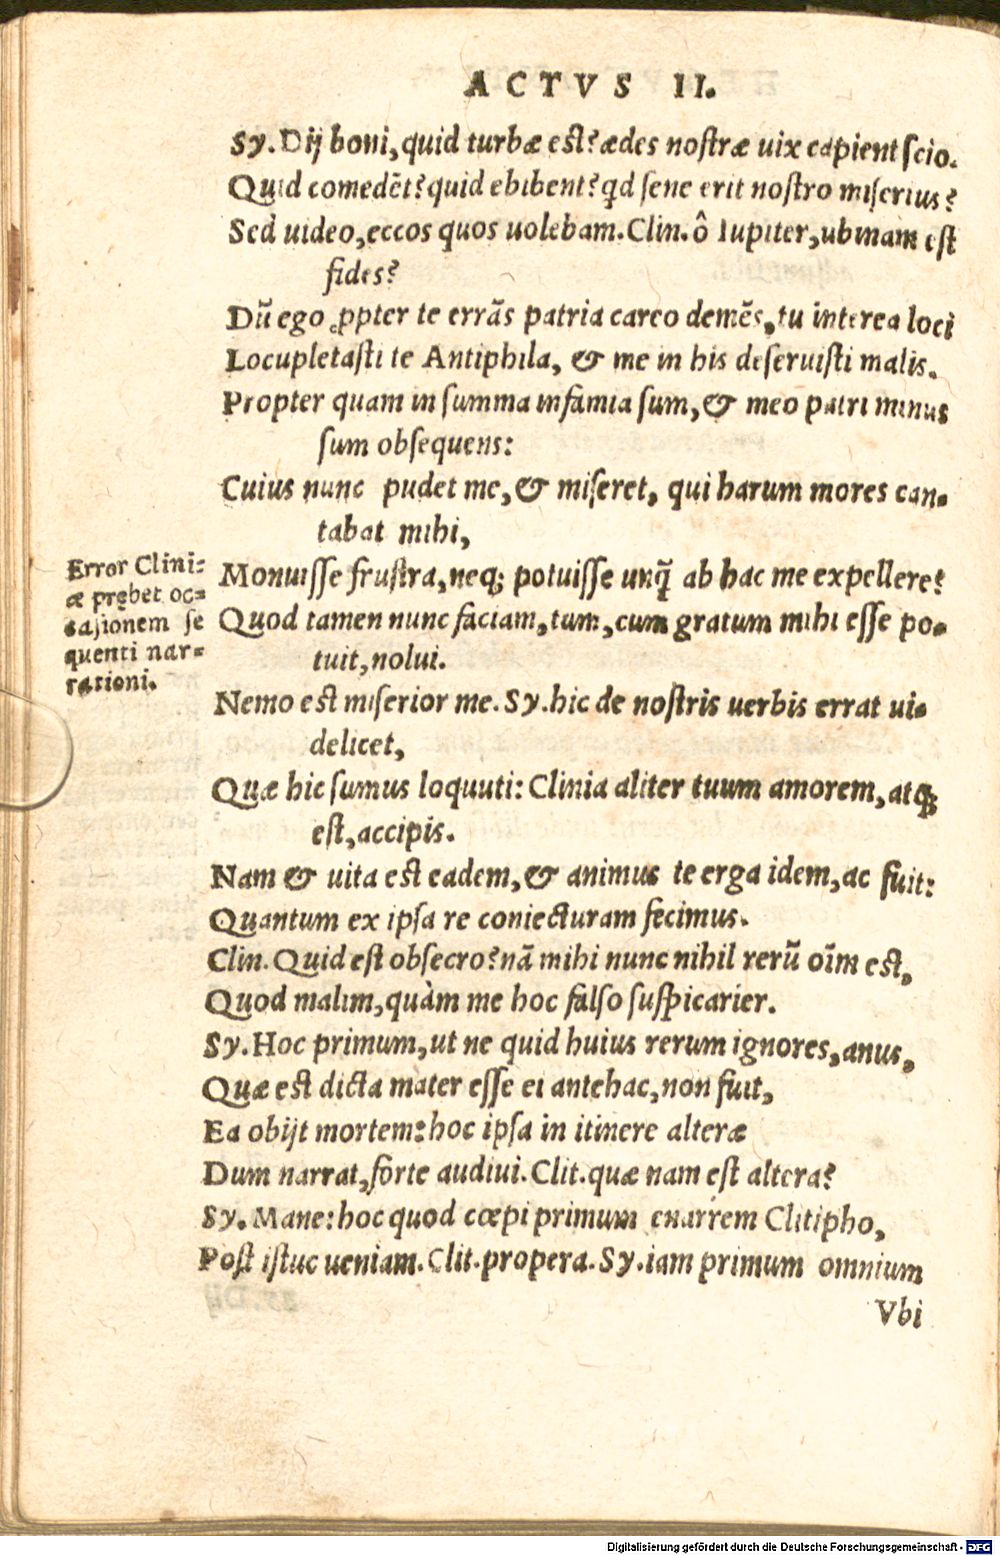 ACTVS II.
Sy. Dij boni, quid turbæ est? ædes nostræ uix capient scio.
Quid comedēt? quid ebibent? qd sene erit nostro miserius?
Sed uideo, eccos quos uolebam. Clin. ô Iupiter, ubinam est
fides?
Dū ego ꝓpter te errās patria careo demēs, tu interea loci
Locupletasti te Antiphila, & me in his deseruisti malis.
Propter quam in summa infamia sum, & meo patri minus
sum obsequens:
Cuius nunc pudet me, & miseret, qui harum mores can-
tabat mihi,
Monuisse frustra, neq; potuisse unq̃ ab hac me expellere?
Quod tamen nunc faciam, tum, cum gratum mihi esse po-
tuit, nolui.
Nemo est miserior me. Sy. hic de nostris uerbis errat ui-
delicet,
Quæ hic sumus loquuti: Clinia aliter tuum amorem, atq;
est, accipis.
Nam & uita est eadem, & animus te erga idem, ac fuit:
Quantum ex ipsa re coniecturam fecimus.
Clin. Quid est obsecro? nā mihi nunc nihil rerū oīm est,
Quod malim, quàm me hoc falso suspicarier.
Sy. Hoc primum, ut ne quid huius rerum ignores, anus,
Quæ est dicta mater esse ei antehac, non fuit,
Ea obijt mortem: hoc ipsa in itinere alteræ
Dum narrat, forte audiui. Clit. quæ nam est altera?
Sy. Mane: hoc quod cœpi primum enarrem Clitipho,
Post istuc ueniam. Clit. propera. Sy. iam primum omnium
Vbi
Error Clini-
æ prębet oc-
casionem se
quenti nar-
rationi.
Digitalisierung gefördert durch die Deutsche Forschungsgemeinschaft - DFG